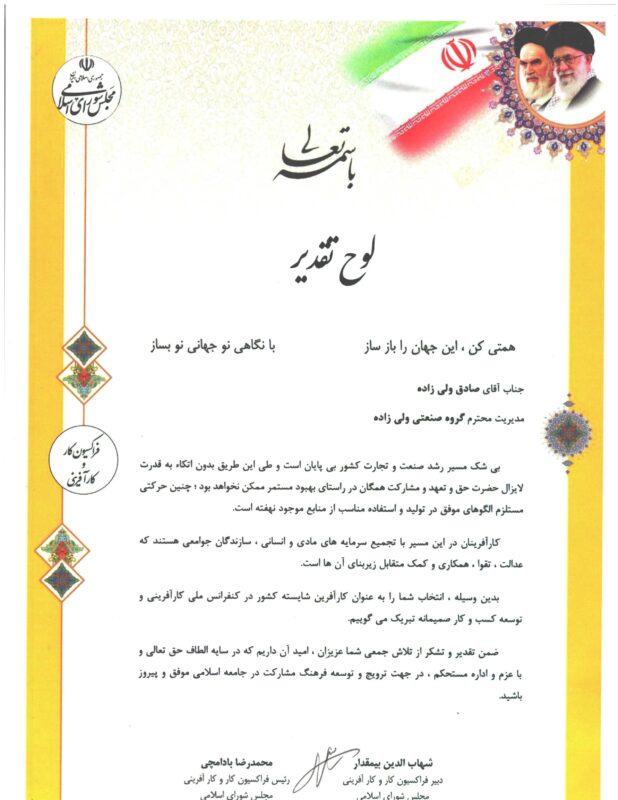 جمهوری اسلامی ایران
مجلس شورای اسلامی
باسمه تعالی
لوح تقدیر
همتی کن ، این جهان را باز ساز
با نگاهی نو جهانی نو بساز
جناب آقای صادق ولی زاده
مدیریت محترم گروه صنعتی ولی زاده
فراکسیون کار
و
کارآفرینی
بی شک مسیر رشد صنعت و تجارت کشور بی پایان است و طی این طریق بدون اتکاء به قدرت
لایزال حضرت حق و تعهد و مشارکت همگان در راستای بهبود مستمر ممکن نخواهد بود ؛ چنین حرکتی
مستلزم الگوهای موفق در تولید و استفاده مناسب از منابع موجود نهفته است.
کارآفرینان در این مسیر با تجمیع سرمایه های مادی و انسانی ، سازندگان جوامعی هستند که
عدالت ، تقوا ، همکاری و کمک متقابل زیربنای آن ها است.
بدین وسیله ، انتخاب شما را به عنوان کارآفرین شایسته کشور در کنفرانس ملی کارآفرینی و
توسعه کسب و کار صمیمانه تبریک می گوییم.
ضمن تقدیر و تشکر از تلاش جمعی شما عزیزان ، امید آن داریم که در سایه الطاف حق تعالی و
با عزم و اداره مستحکم ، در جهت ترویج و توسعه فرهنگ مشارکت در جامعه اسلامی موفق و پیروز
باشید.
شهاب الدین بیمقدار
دبیر فراکسیون کار و کار آفرینی
مجلس شورای اسلامی
محمدرضا بادامچی
رئیس فراکسیون کار و کار آفرینی
مجلس شورای اسلامی